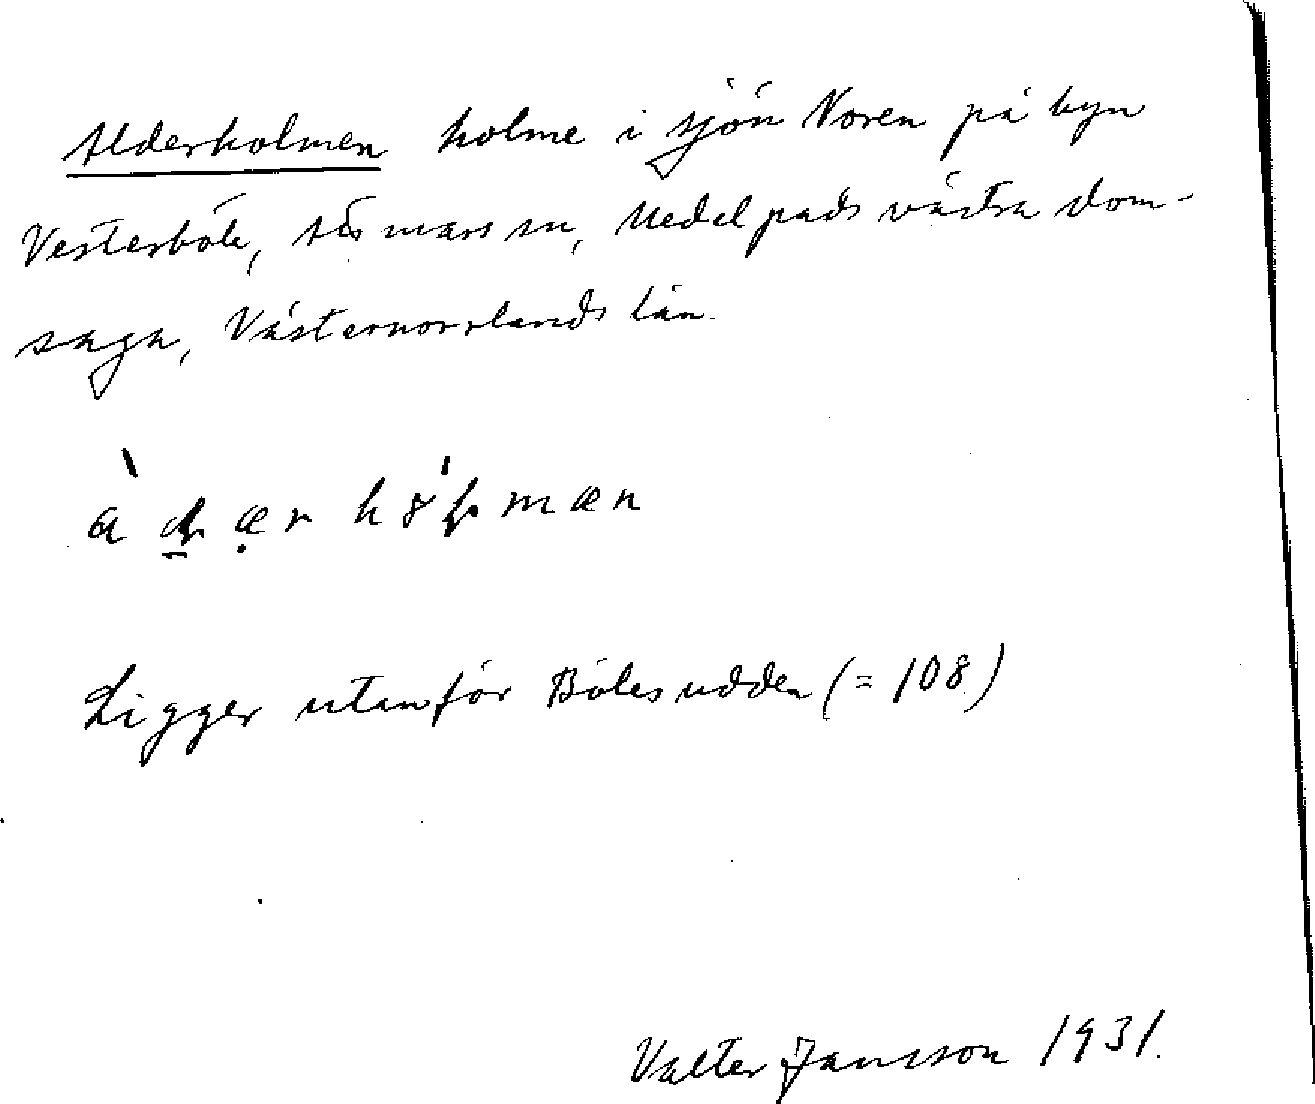 Alderholmen holme i sjön Noren på byn
Vesterböle, Tösmarss sn, Medelpads västra dom-
saga, Västernorrlands län.
Ligger utanför Bölesudden (= 108)
Valter Jansson 1931.